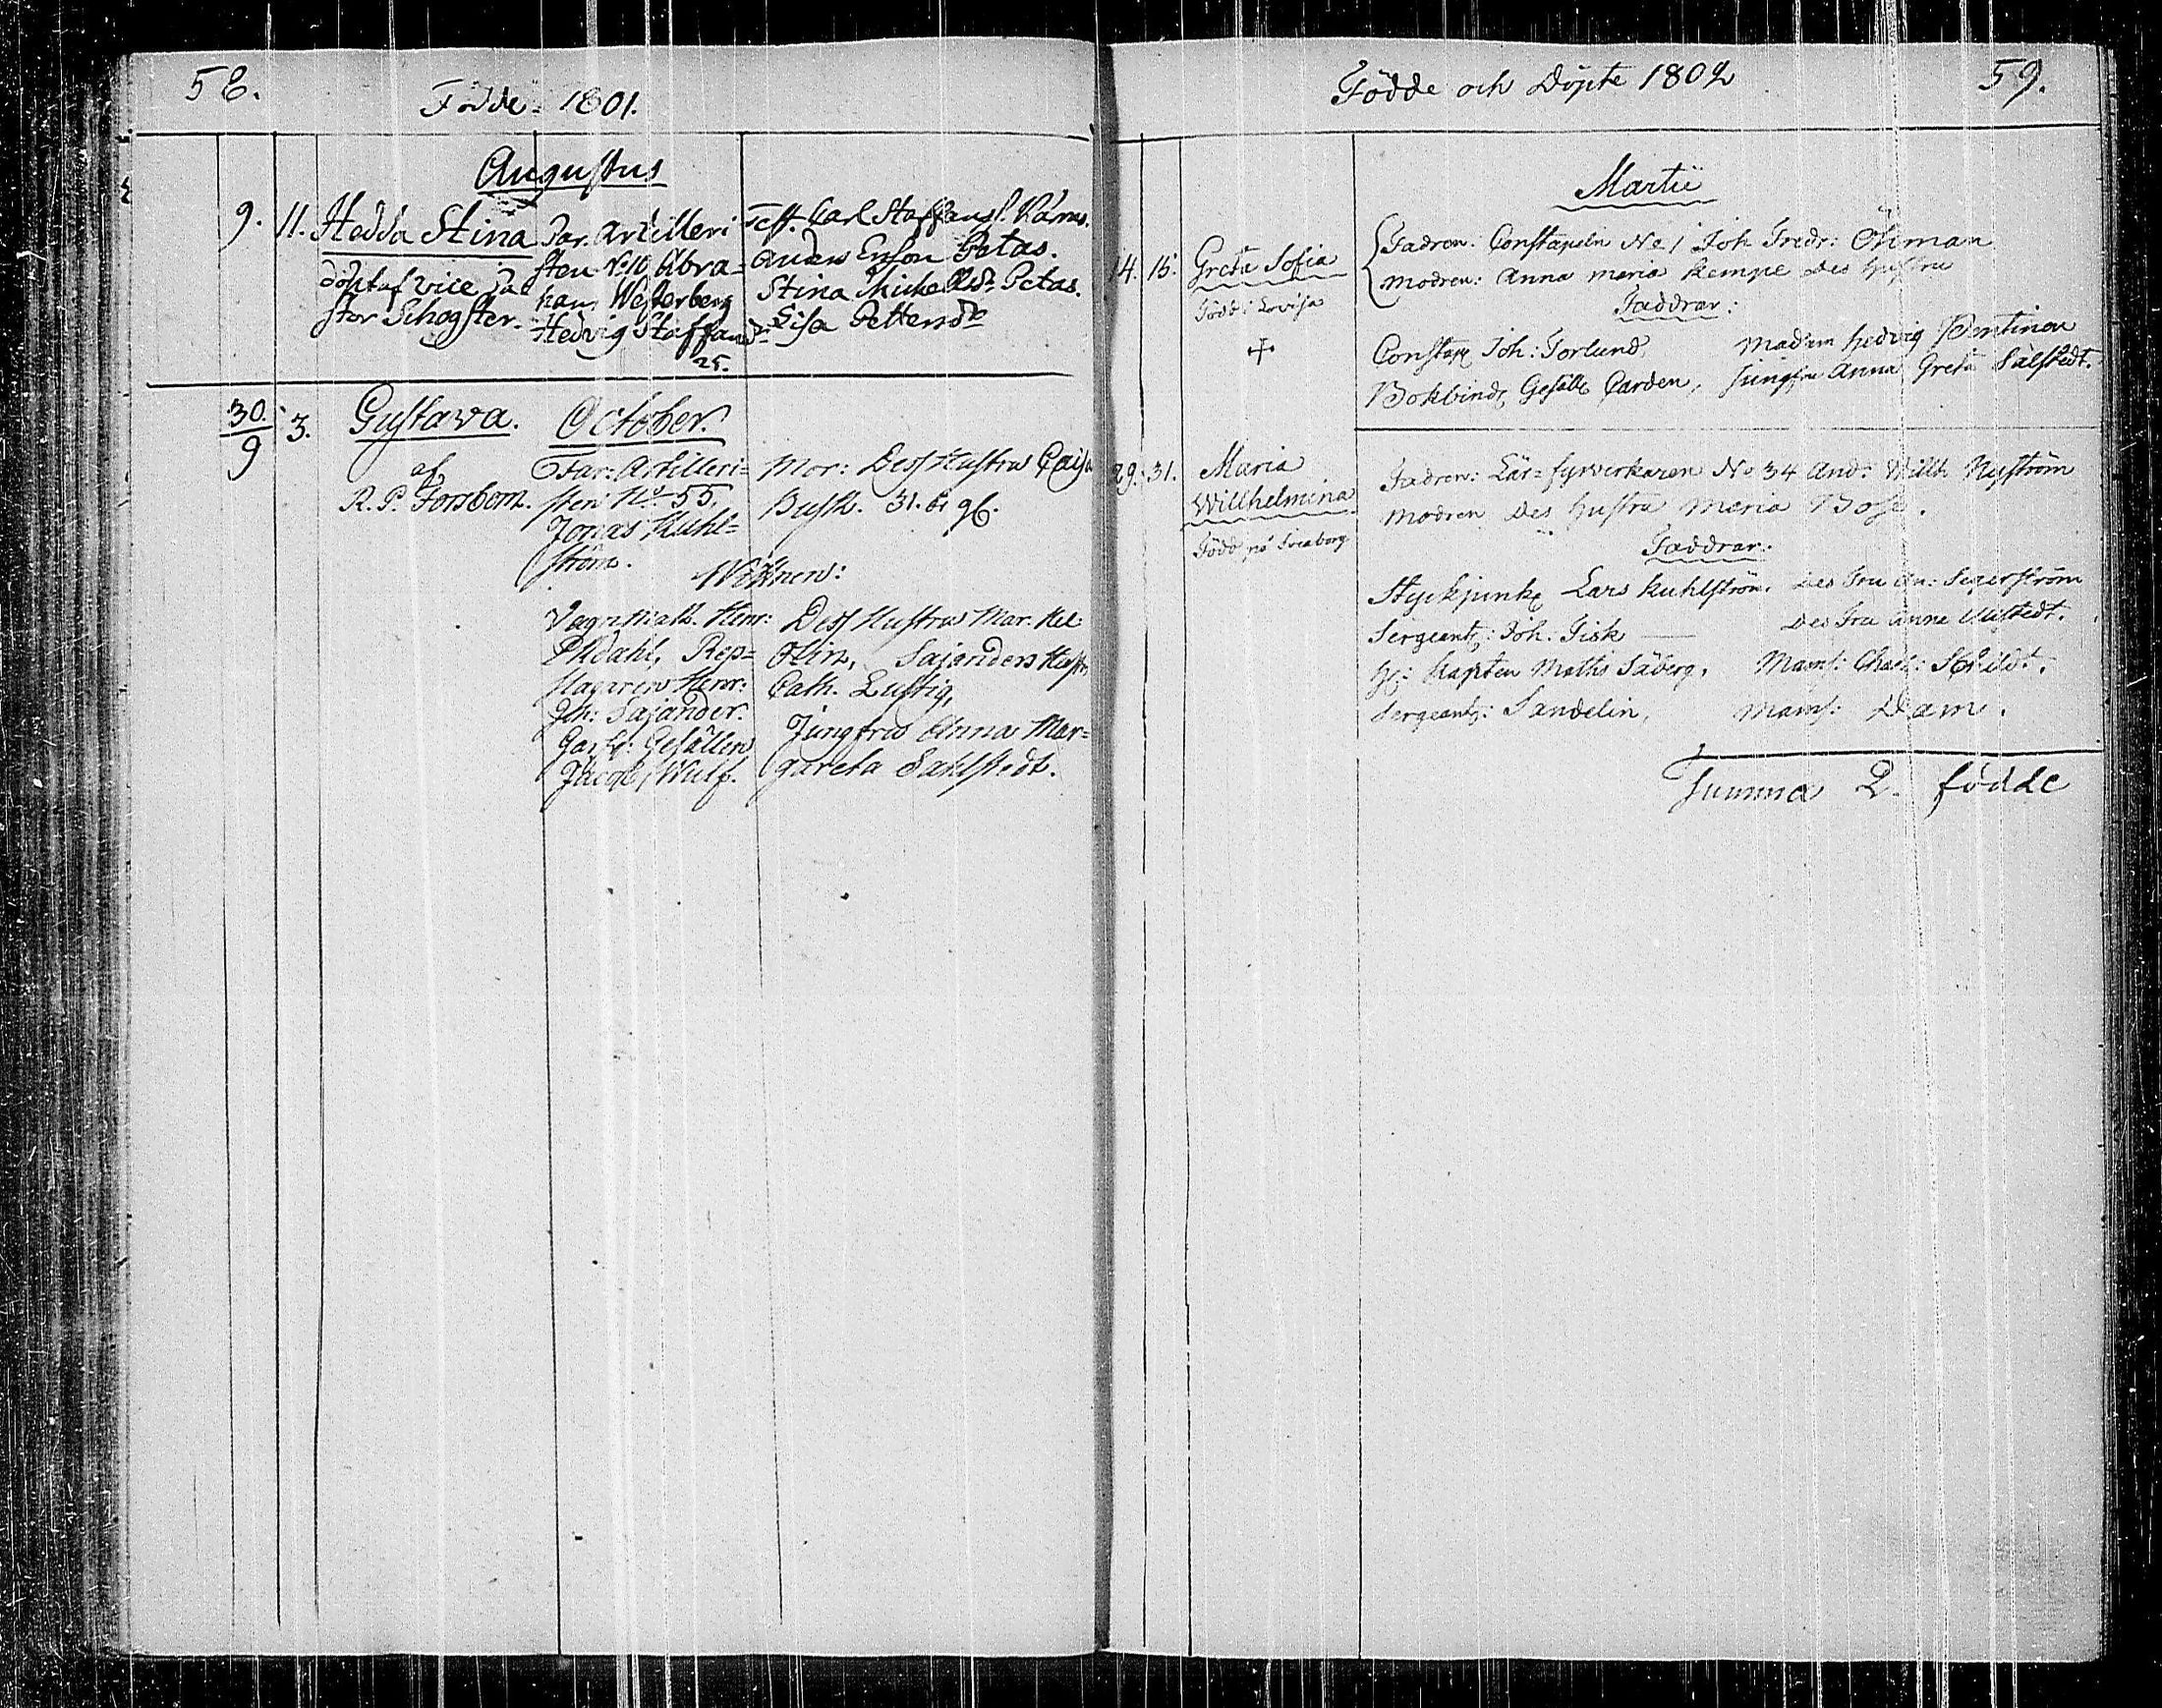 58.
Födde 1801.
Augustus
9. 11. Hedda Stina
döpt af vice Pa
stor Schogster.
Far. Artilleri
sten No 10 Abra=
ham Westerberg
Hedvig Staffansdr
25.
Test. Carl Staffans
Anders Ersson Petas.
Stina Michelsdr Petas.
Lisa Pettersdr
30./9 3. Gustava.
October.
af
R. P. Forsbom.
Far: Artilleri=
sten No 55.
Jonas Kuhl=
ström.
Mor: Dess Hustru Caisa
Busk. 31.
Wittnen:
Vagnmak. Henr:
Ekdahl, Rep=
slagaren Henr:
Joh: Sajander.
Garfv: Gesällen
Jacob Wulf.
Dess Hustru Mar. Hel.
Olin, Sajanders Hustr.
Cath. Lustig,
Jungfru Anna Mar=
gareta Sahlstedt.
Födde och Döpte 1802
59.
Martii
14. 15. Greta Sofia
Född i Lovisa
Fadren: Constapeln No 1 Joh Fredr: Öhman
Modren: Anna Maria Kempe Des Hustru
Faddrar:
Constap Joh: Forlund, Madam Hedvig
Bokbind Gesäll Carden, Jungfru Anna Greta Sälstedt.
29. 31. Maria
Willhelmina
Född på Sveaborg
Fadren: Lär=fyrverkaren No 34 And: Willh Nyström
Modren Des Hustru Maria
Faddrar:
Styckjunk Lars Kuhlström, Des Fru An: Segerström
Sergeant: Joh. Fisk — Des Fru Anna
Hr: Kapten Maths Säberg, Mams: Charl: Schildt.
Sergeant: Sandelin, Mams: Dam.
Summa 2 födde